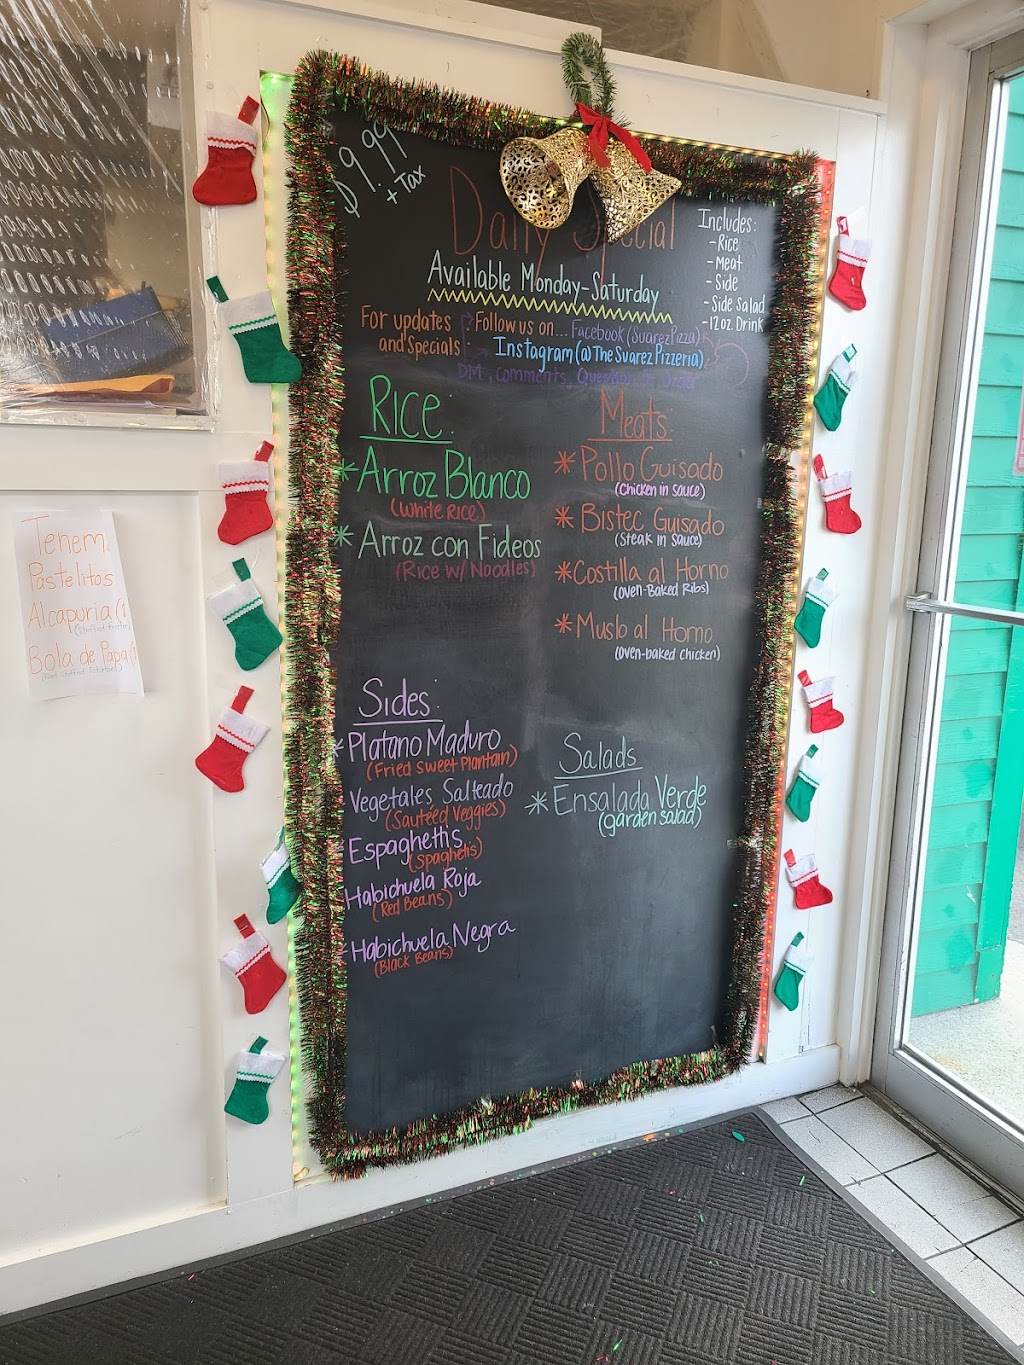 $9.99
+ Tax
Daily Special
Available Monday-Saturday
Includes:
- Rice
- Meat
- Side
- Side Salad
- 12oz Drink
For updates
and Specials:
Follow us on... Facebook (SuarezPizza)
Instagram (@TheSuarezPizzeria)
DM, comments,
Rice:
* Arroz Blanco
(White Rice)
* Arroz con Fideos
(Rice w/ Noodles)
Meats:
* Pollo Guisado
(Chicken in sauce)
* Bistec Guisado
(Steak in Sauce)
* Costilla al Horno
(Oven-Baked Ribs)
* Muslo al Horno
(Oven-baked Chicken)
Sides:
* Platano Maduro
(Fried sweet Plantain)
* Vegetales Salteado
(Sautéed Veggies)
* Espaghettis
(Spaghetis)
* Habichuela Roja
(Red Beans)
* Habichuela Negra
(Black Beans)
Salads
* Ensalada Verde
(garden salad)
Tenem
Pastelitos
Alcapuria
Bola de Papa